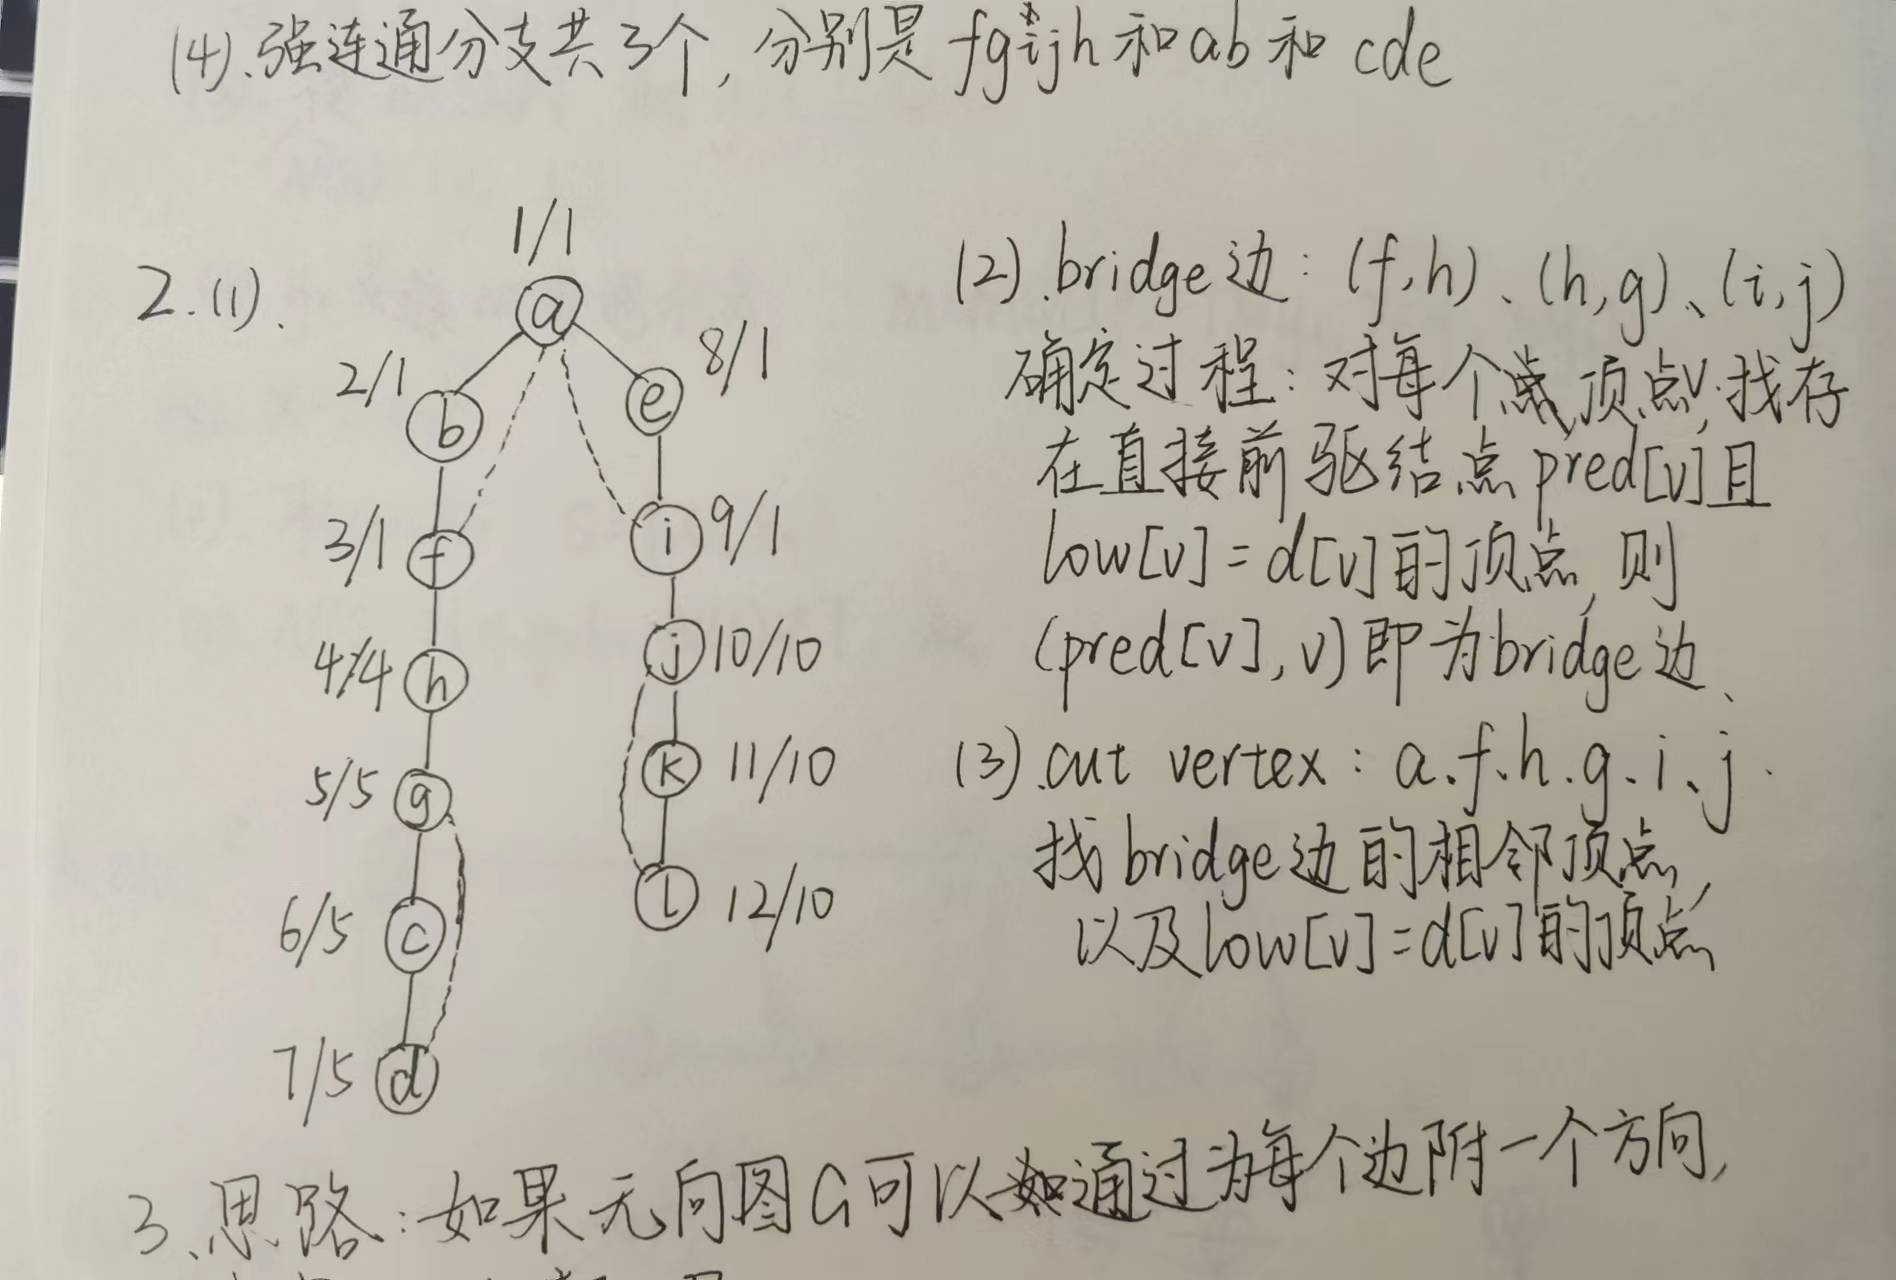 (4).强连通分支共3个,分别是fgijh和ab和cde
2.(1).
1/1
a
2/1
b
8/1
e
3/1
f
9/1
i
4/4
h
10/10
j
5/5
g
11/10
k
6/5
c
12/10
l
7/5
d
(2).bridge边:(f,h)、(h,g)、(i,j)
确定过程:对每个点顶点v,找存
在直接前驱结点pred[v]且
low[v]=d[v]的顶点,则
(pred[v],v)即为bridge边、
(3).cut vertex:a、f、h、g、i、j.
找bridge边的相邻顶点,
以及low[v]=d[v]的顶点
3、思路:如果无向图G可以通过为每个边附一个方向,